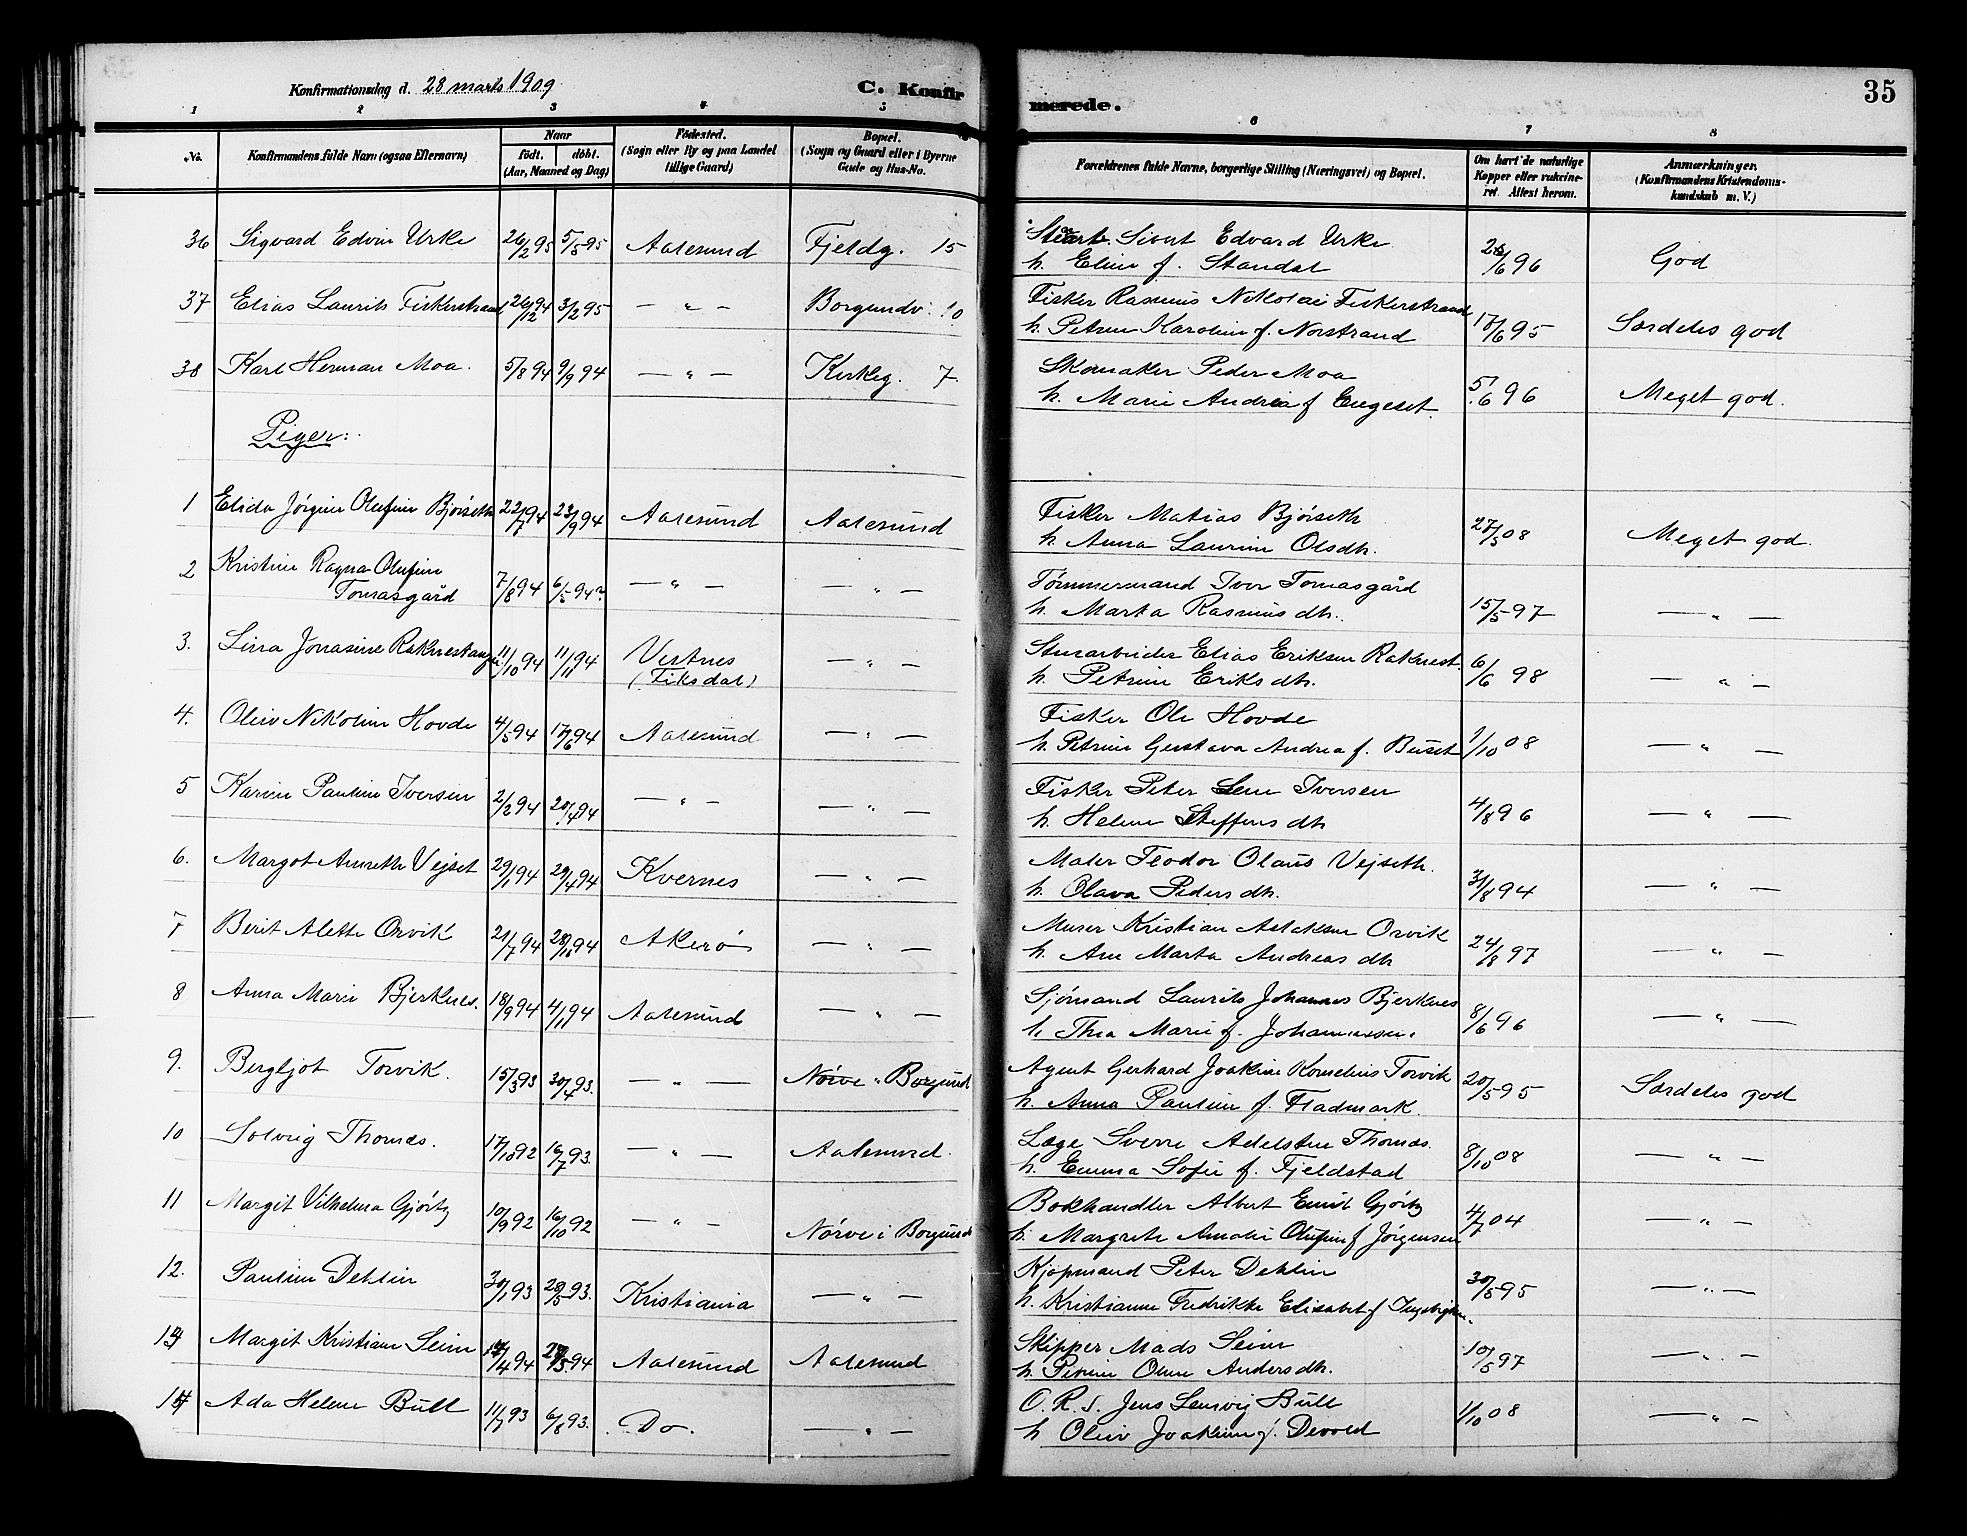 35
Konfirmationsdag d. 28 marts 1909
C. Konfirmerede.
1 2 3 4 5 6 7 8
No.
Konfirmandens fulde Navn (ogsaa Efternavn)
Naar
født. døbt.
(Aar, Maaned og Dag)
Fødested.
(Sogn eller By og paa Landet
tillige Gaard)
Bopæl.
(Sogn og Gaard eller i Byerne
Gade og Hus-No.
Forældrenes fulde Navne, borgerlige Stilling (Næringsvei) og Bopæl.
Om havt de naturlige
Kopper eller vakcine-
ret. Attest herom.
Anmærkninger.
(Konfirmandens Kristendoms-
kundskab m. V.)
36 Sigvard Edvin Urke 26/2 95 5/5 95 Aalesund Fjeldg. 15 Sivert Edvard Urke /6 96 God
h. Eline f. Standal
37 Elias Laurits Fiskerstrand 26/12 94 3/2 95 — " — Borgundv. 10 Fisker Rasmus Nikolai Fiskerstrand 17/6 95 Særdeles god
h. Petrine Karoline f. Norstrand
38 Karl Herman Moa. 5/8 94 9/9 94 — " — Kirkeg. 7 Skomaker Peder Moa 5/6 96 Meget god.
h. Marie Andrea f Engeset.
Piger:
1 Elida Jørgine Olufine Bjørseth 22/7 94 23/9 94 Aalesund Aalesund Fisker Matias Bjørseth 27/5 08 Meget god.
h. Anna Laurine Olsdtr.
2 Kristine Ragna Olufine
Tomasgård 7/8 94 6/5 94? — " — — " — Tømmermand Iver Tomasgård 15/5 97 — " —
h. Marta Rasmusdtr.
3. Lina Jonasine Raknestangen 11/10 94 11/11 94 Vestnes
(Fiksdal) — " — Stuearbeider Elias Eriksen Raknest. 6/6 98 — " —
h. Petrine Eriksdtr.
4. Oliv Nikoline Hovde 4/5 94 17/6 94 Aalesund — " — Fisker Ole Hovde 1/10 08 — " —
h. Petrine Gustava Andrea f. Buset
5 Karine Pauline Iversen 2/2 94 20/4 94 — " — — " — Fisker Peter Lene Iversen 4/8 96 — " —
h. Helene Steffensdtr
6. Margot Annette Vejset 29/1 94 29/4 94 Kvernes — " — Maler Teodor Olaus Vejseth. 31/8 94 — " —
h. Olava Pedersdtr.
7 Berit Alette Orvik 21/7 94 28/10 94 Akerø — " — Murer Kristian Orvik 24/8 97 — " —
h. Ane Marta Andreasdtr
8 Anna Marie Bjerknes. 18/9 94 4/11 94 Aalesund — " — Sjømand Laurits Johannes Bjerknes 8/6 96 — " —
h. Thea Marie f. Johannessen.
9. Bergljot Torvik. 15/3 93 30/4 93. — " — Nørve " Borgund Agent Gerhard Joakim Kornelius Torvik 20/5 95 Særdeles god
h. Anna Pauline f. Fladmark.
10 Solveig Thomas. 17/10 92 16/7 93. — " — Aalesund. Læge Sverre Adelsten Thomas. 8/10 08 — " —
h. Emma Sofie f. Fjeldstad
11 Margit Vilhelma Gjørtz 10/9 92 16/10 92 — " — Nørve i Borgund Bokhandler Albert Emil Gjørtz 4/7 04 — " —
h. Margrete Amalie Olufine f Jørgensen
12. Pauline Dehlin 30/1 93 28/5 93. Kristiania — " — Kjøpmand Peter Dehlin 30/5 95 — " —
h. Kristianne Fredrikke Elisabet f
13 Margit Kristiane Seim /4 94 /5 94 Aalesund Aalesund Skipper Mads Seim 10/5 97 — " —
h. Oline Andersdtr.
14 Ada Helene Bull 11/7 93 6/8 93. Do. — " — O.R.S. Jens Lemvig Bull 1/10 08 — " —
h Oliv Joakime f. Devold